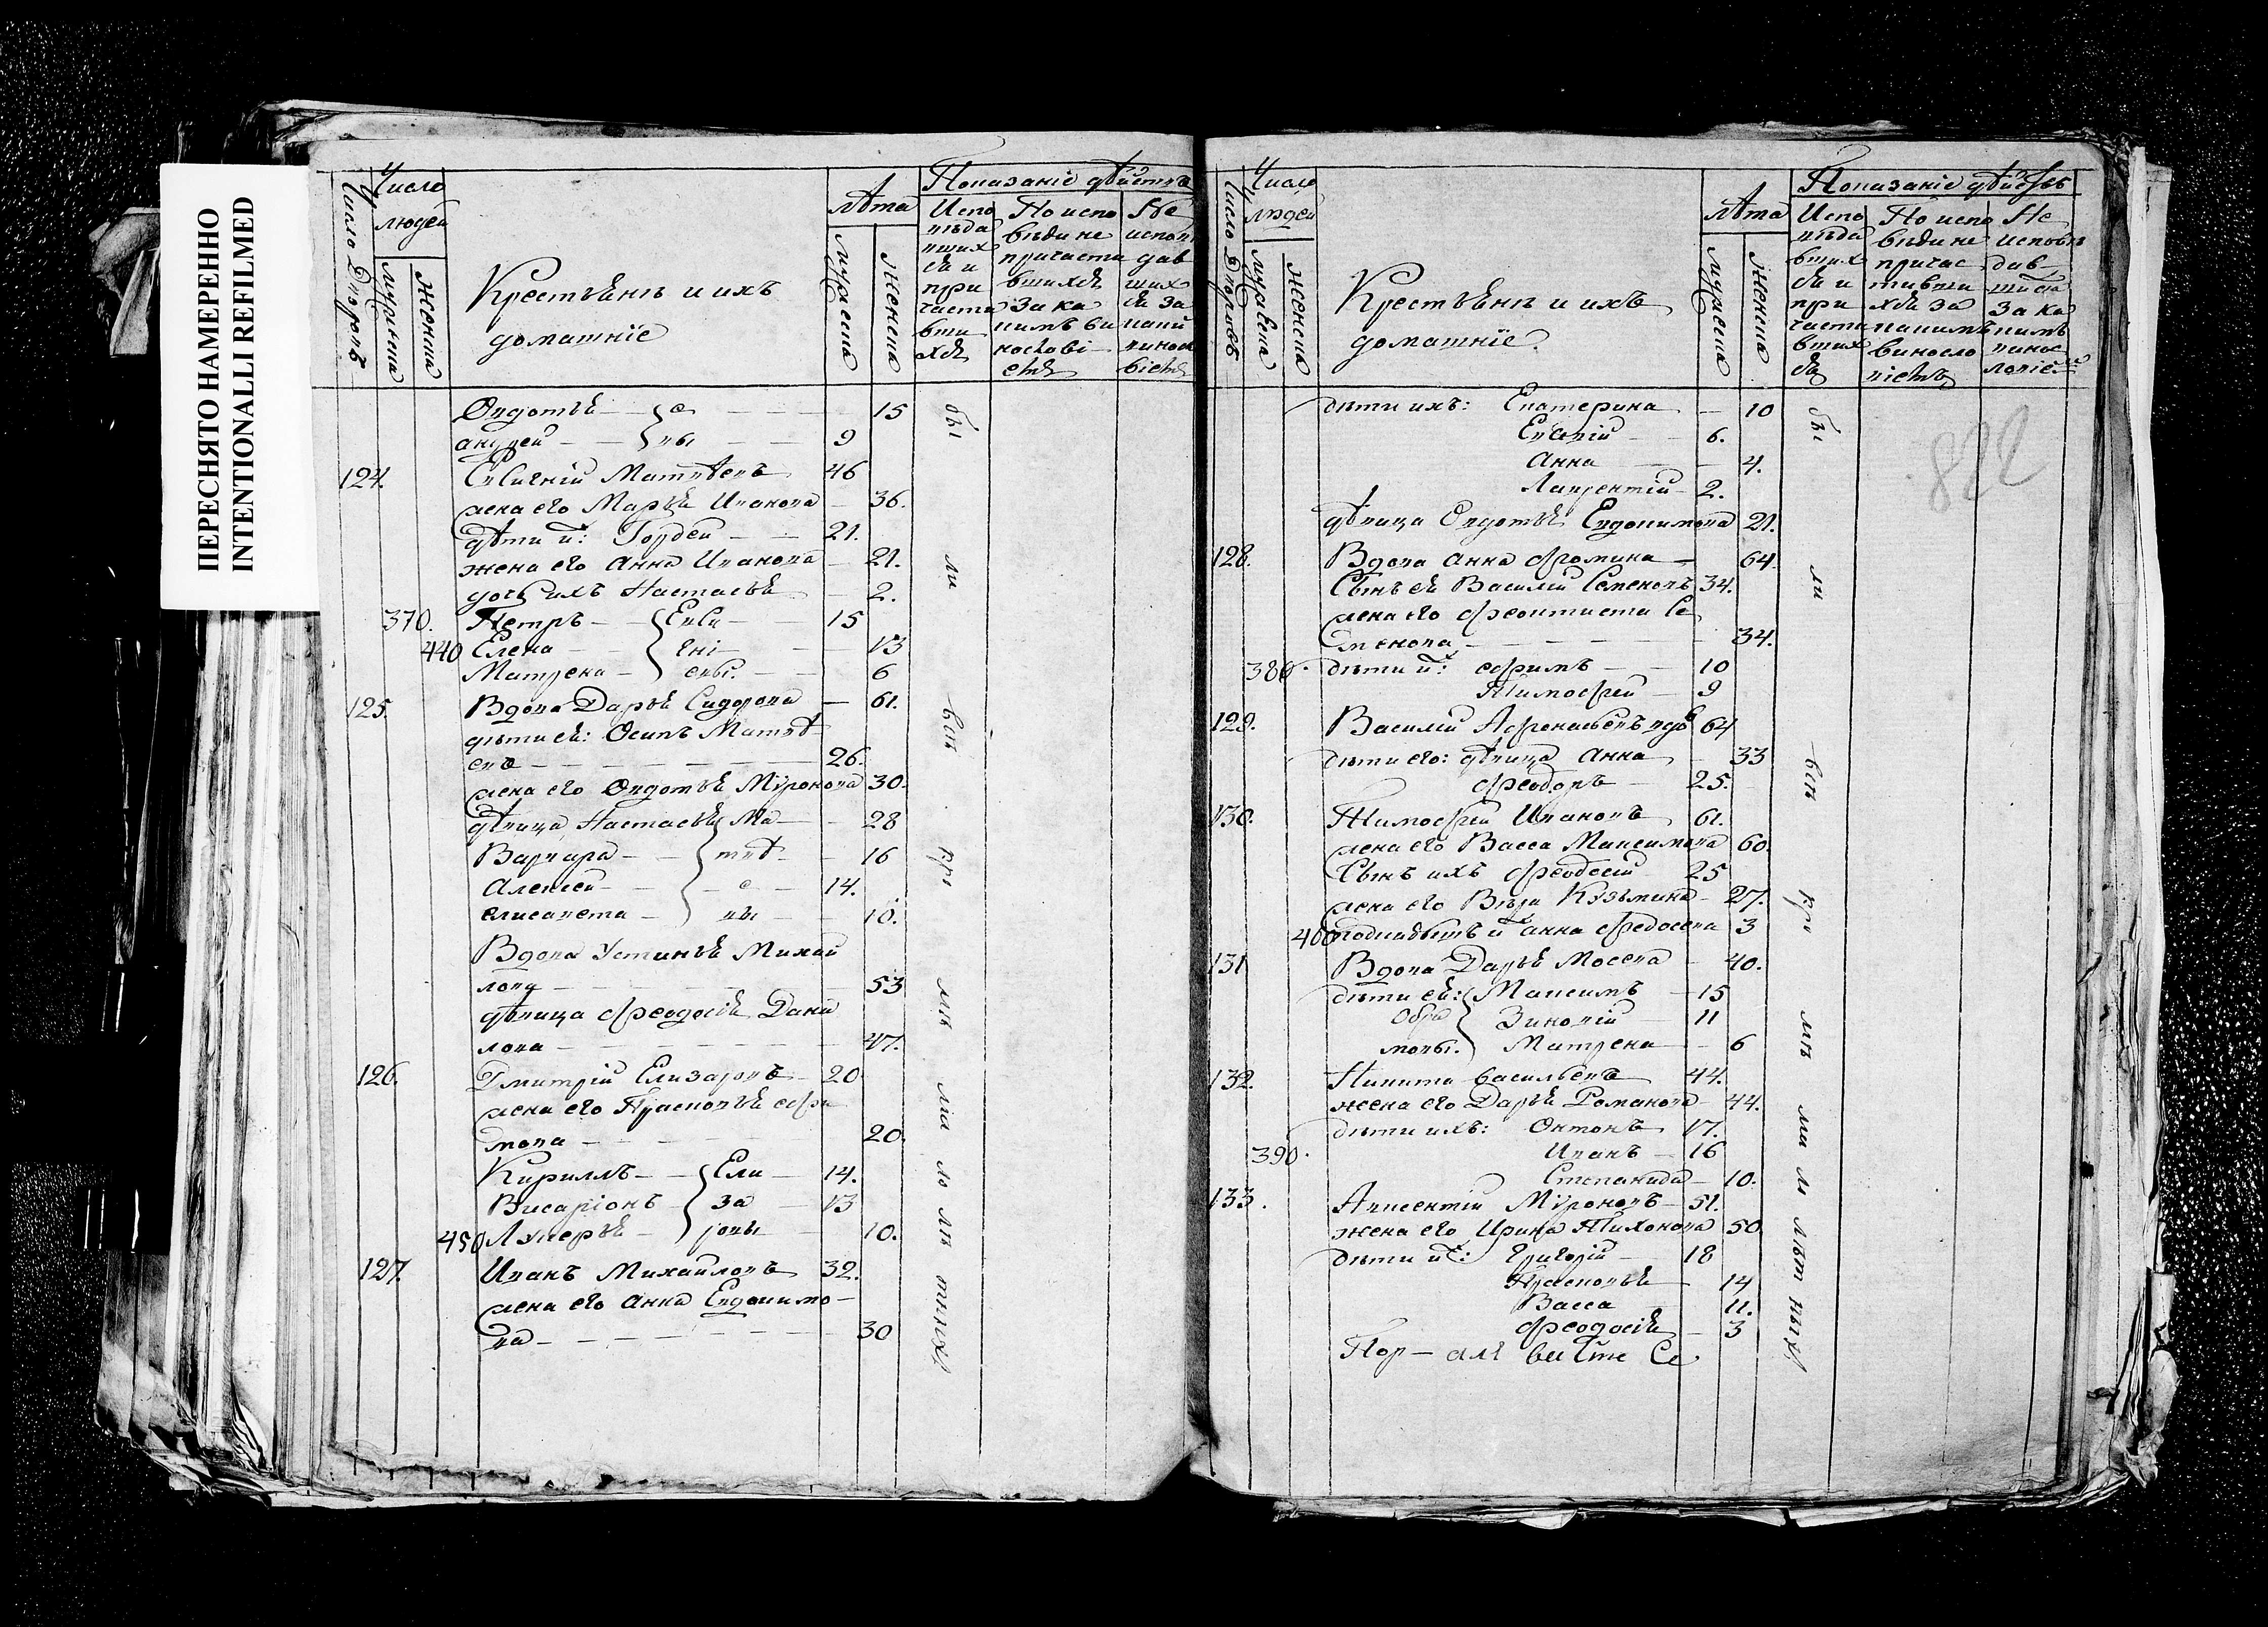 ПЕРЕСНЯТО НАМЕРЕННО
INTENTIONALLI REFILMED
Число Дворовъ
Число людей
мужеска
женска
Крестьянъ и ихъ
домашніе
лѣта
мужеска
женска
Показаніе дѣйствъ
Испо
вѣда
вших
сѧ и
при
части
вши
хсѧ
По испо
вѣди не
причасти
вшихсѧ
за ка
кимъ ви
нослові
емъ
Не
испов
дав
ших
сѧ за
каки
винос
віемъ
Овдотьѧ — } е — 15
андрей — } вы — 9
124. Матвѣевъ 46
жена его Марьѧ Иванова — 36.
дѣти ихъ: Гордей — 21.
жена его Анна Иванова — 21.
дочь ихъ Настасьѧ — 2.
370. Петръ — 15
440 Елена — 13
Матрена — 6
125. Вдова Дарьѧ Сидорова — 61.
дѣти еѧ: Осипъ Матвѣ
евъ — 26.
жена его Овдотьѧ Мѵронова 30.
дѣвица Настасьѧ } Ма — 28
Варвара — } твѣ — 16
Алексей — } е — 14.
елисавета — } вы — 10.
Вдова Устиньѧ Михай
лова — 53
дѣвица Ѳеодосіѧ Дани
лова — 47.
126. Дмитрій Елизаровъ 20
жена его Прасковьѧ еѳи
мова — 20.
Кириллъ — } Ели — 14.
Висаріонъ } за — 13
450 Лукерьѧ — } ровы — 10.
127. Иванъ Михайловъ 32.
жена его Анна Евдокимо
ва — 30
бы
ли
всѣ
кро
мѣ
ма
ло
лѣ
тныхъ
Число Дворовъ
Число людей
мужеска
женска
Крестьянъ и ихъ
домашніе.
лѣта
мужеска
женска
Показаніе дѣйствъ
Испо
вѣда
вших
сѧ и
при
части
вших
сѧ
По испо
вѣди не
причас
тивши
хсѧ за
какимъ
виносло
віемъ
Не
исповѣ
дав
шихсѧ
за ка
кимъ
винос
ловіем
822
дѣти ихъ: Екатерина — 10
Евсевій — 6.
Анна — 4.
Лаврентій — 2.
дѣвица Овдотьѧ Евдокимова 21.
128. Вдова Анна Ѳомина — 64.
Сынъ еѧ Василій Семеновъ 34.
жена его Ѳеоктиста Се
менова — 34.
380. дѣти ихъ: еѳимъ — 10
Тимоѳей — 9
129. Василій Аѳонасьевъ вдовъ 64
дѣти его: дѣвица Анна — 33
Ѳеодоръ — 25.
130. Тимоѳей Ивановъ 61.
жена его Васса Максимова 60.
Сынъ ихъ Ѳеодосій 25
жена его Вѣра Кузьмина — 27.
400 анна Ѳедосева 3
131 Вдова Дарьѧ Мосева — 40.
дѣти еѧ: Максимъ — 15
Абра } Зиновій — 11
мовы. } Матрена — 6
132. Никита Васильевъ 44.
жена его Дарьѧ Романова — 44.
дѣти ихъ: Антонъ 17.
390. Иванъ — 16
Степанида — 10.
133. Авксентій Мѵроновъ — 51.
жена его Ирина Тихонова 50.
дѣти ихъ: Григорій — 18
Прасковьѧ 14
Васса 11.
Ѳеодосіѧ — 3
бы
ли
всѣ
кро
мѣ
ма
ло
лѣт
ныхъ